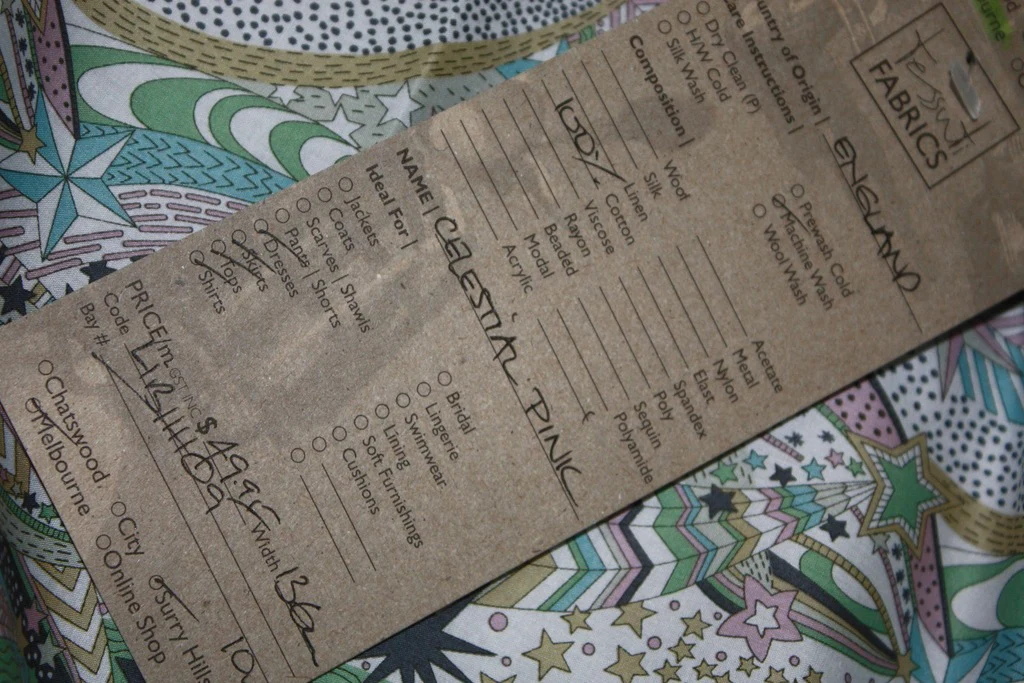 Tessuti
FABRICS
ountry of Origin | ENGLAND
are Instructions |
Dry Clean (P)
H/W Cold
Silk Wash
Prewash Cold
Machine Wash
Wool Wash
Composition |
Wool
Silk
Linen
100% Cotton
Viscose
Rayon
Beaded
Modal
Acrylic
Acetate
Metal
Nylon
Elast
Spandex
Poly
Sequin
Polyamide
NAME | CELESTIAL PINK
Ideal For |
Jackets
Coats
Scarves | Shawls
Pants | Shorts
Dresses
Skirts
Tops
Shirts
Bridal
Lingerie
Swimwear
Lining
Soft Furnishings
Cushions
PRICE/m GST INC $49.95 Width 136
Code
Bay #
Chatswood
Melbourne
City
Online Shop
Surry Hills
ourne